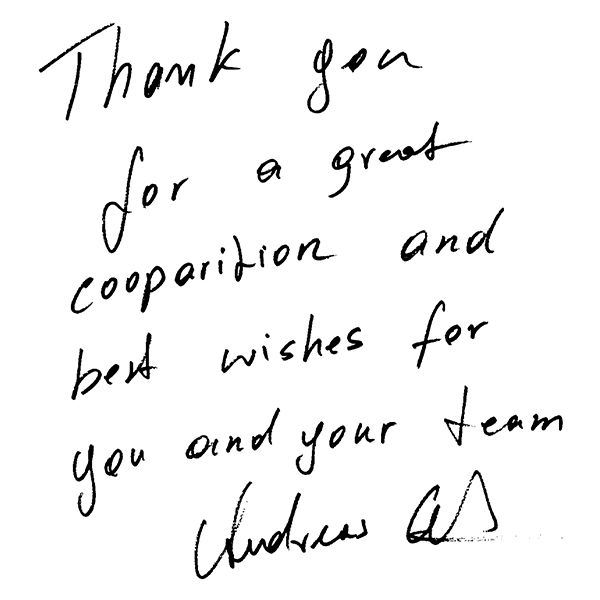 Thank you
for a great
cooparition and
best wishes for
you and your team
Andreas